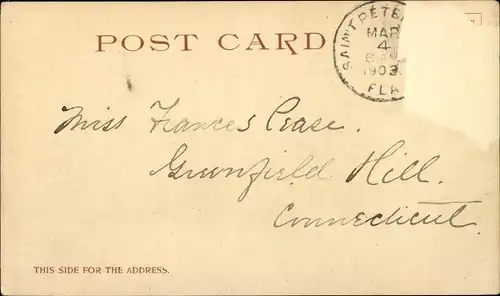 POST CARD
SAINT PETE
MAR
4
1903
FLA
Miss Frances Pease.
Greenfield Hill.
Connecticut.
THIS SIDE FOR THE ADDRESS.